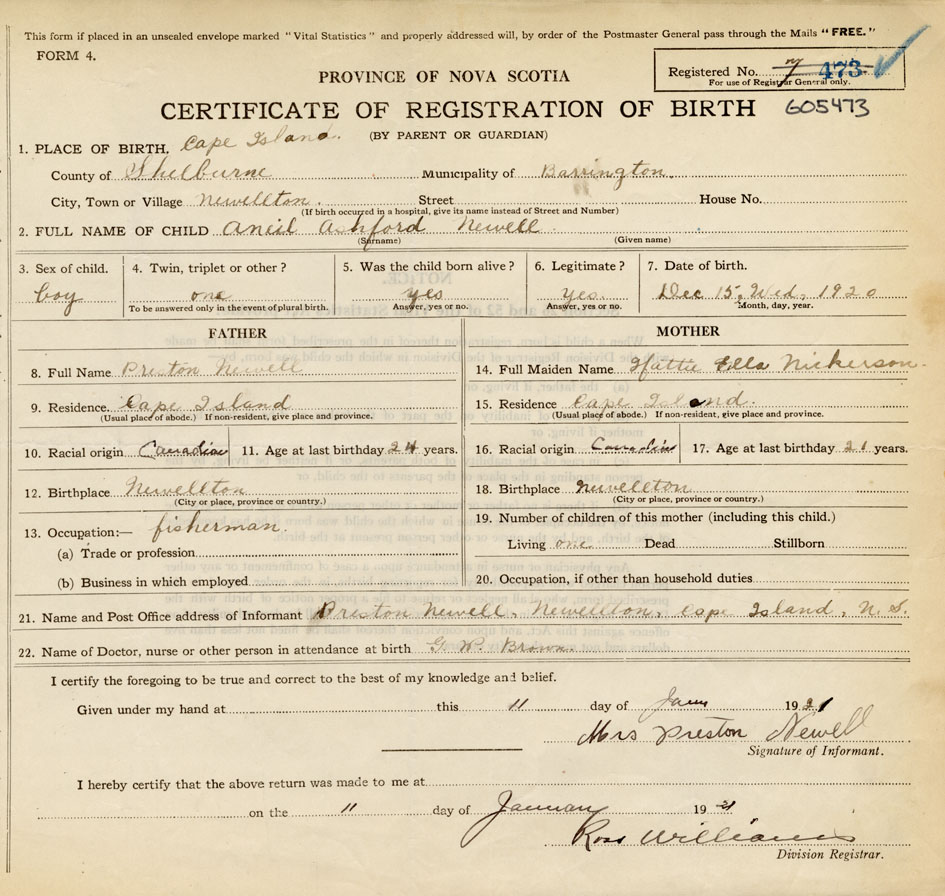 This form if placed in an unsealed envelope marked "Vital Statistics" and properly addressed will, by order of the Postmaster General pass through the Mails "FREE."
FORM 4.
Registered No. 473
For use of Registrar General only.
PROVINCE OF NOVA SCOTIA
CERTIFICATE OF REGISTRATION OF BIRTH 605473
(BY PARENT OR GUARDIAN)
1. PLACE OF BIRTH. Cape Island.
County of Shelburne Municipality of Barrington.
City, Town or Village Newellton. Street House No.
(If birth occurred in a hospital, give its name instead of Street and Number)
2. FULL NAME OF CHILD Aneil Ashford Newell
(Surname) (Given name)
3. Sex of child. 4. Twin, triplet or other? 5. Was the child born alive? 6. Legitimate? 7. Date of birth.
boy one yes yes. Dec 15, Wed, 1920
To be answered only in the event of plural birth. Answer, yes or no. Answer, yes or no. Month, day, year.
FATHER MOTHER
8. Full Name Preston Newell 14. Full Maiden Name Hattie Ella Nickerson.
9. Residence. Cape Island 15. Residence Cape Island.
(Usual place of abode.) If non-resident, give place and province. (Usual place of abode.) If non-resident, give place and province.
10. Racial origin Canadian 11. Age at last birthday 24 years. 16. Racial origin Canadian 17. Age at last birthday 21 years.
12. Birthplace Newellton 18. Birthplace Newellton
(City or place, province or country.) (City or place, province or country.)
13. Occupation:— fisherman. 19. Number of children of this mother (including this child.)
(a) Trade or profession Living one Dead Stillborn
(b) Business in which employed 20. Occupation, if other than household duties
21. Name and Post Office address of Informant Preston Newell, Newellton, Cape Island, N.S.
22. Name of Doctor, nurse or other person in attendance at birth G. W. Brown.
I certify the foregoing to be true and correct to the best of my knowledge and belief.
Given under my hand at this 11 day of Jany 1921
Mrs Preston Newell
Signature of Informant.
I hereby certify that the above return was made to me at
on the 11 day of January 1921
Ross Williams
Division Registrar.